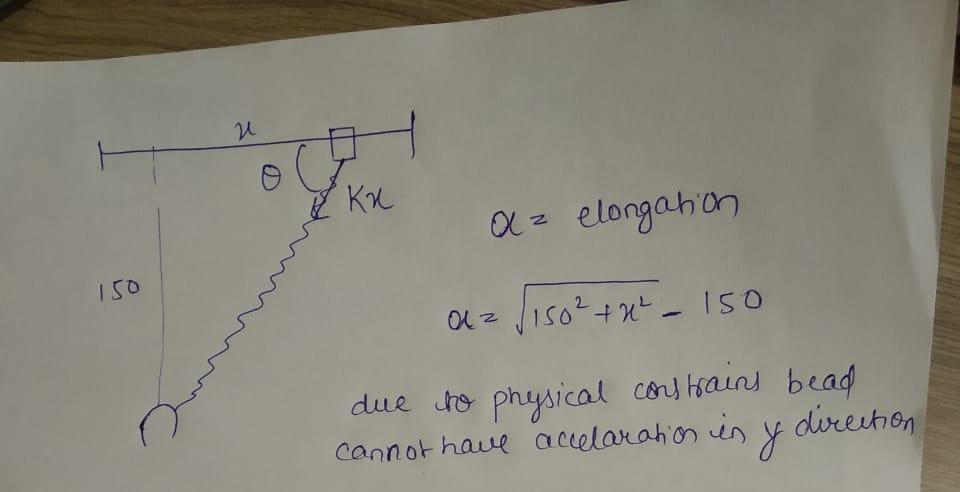 x
θ
Kx
150
x = elongation
x = √150² + x² - 150
due to physical constrains bead
cannot have accelaration in y direction